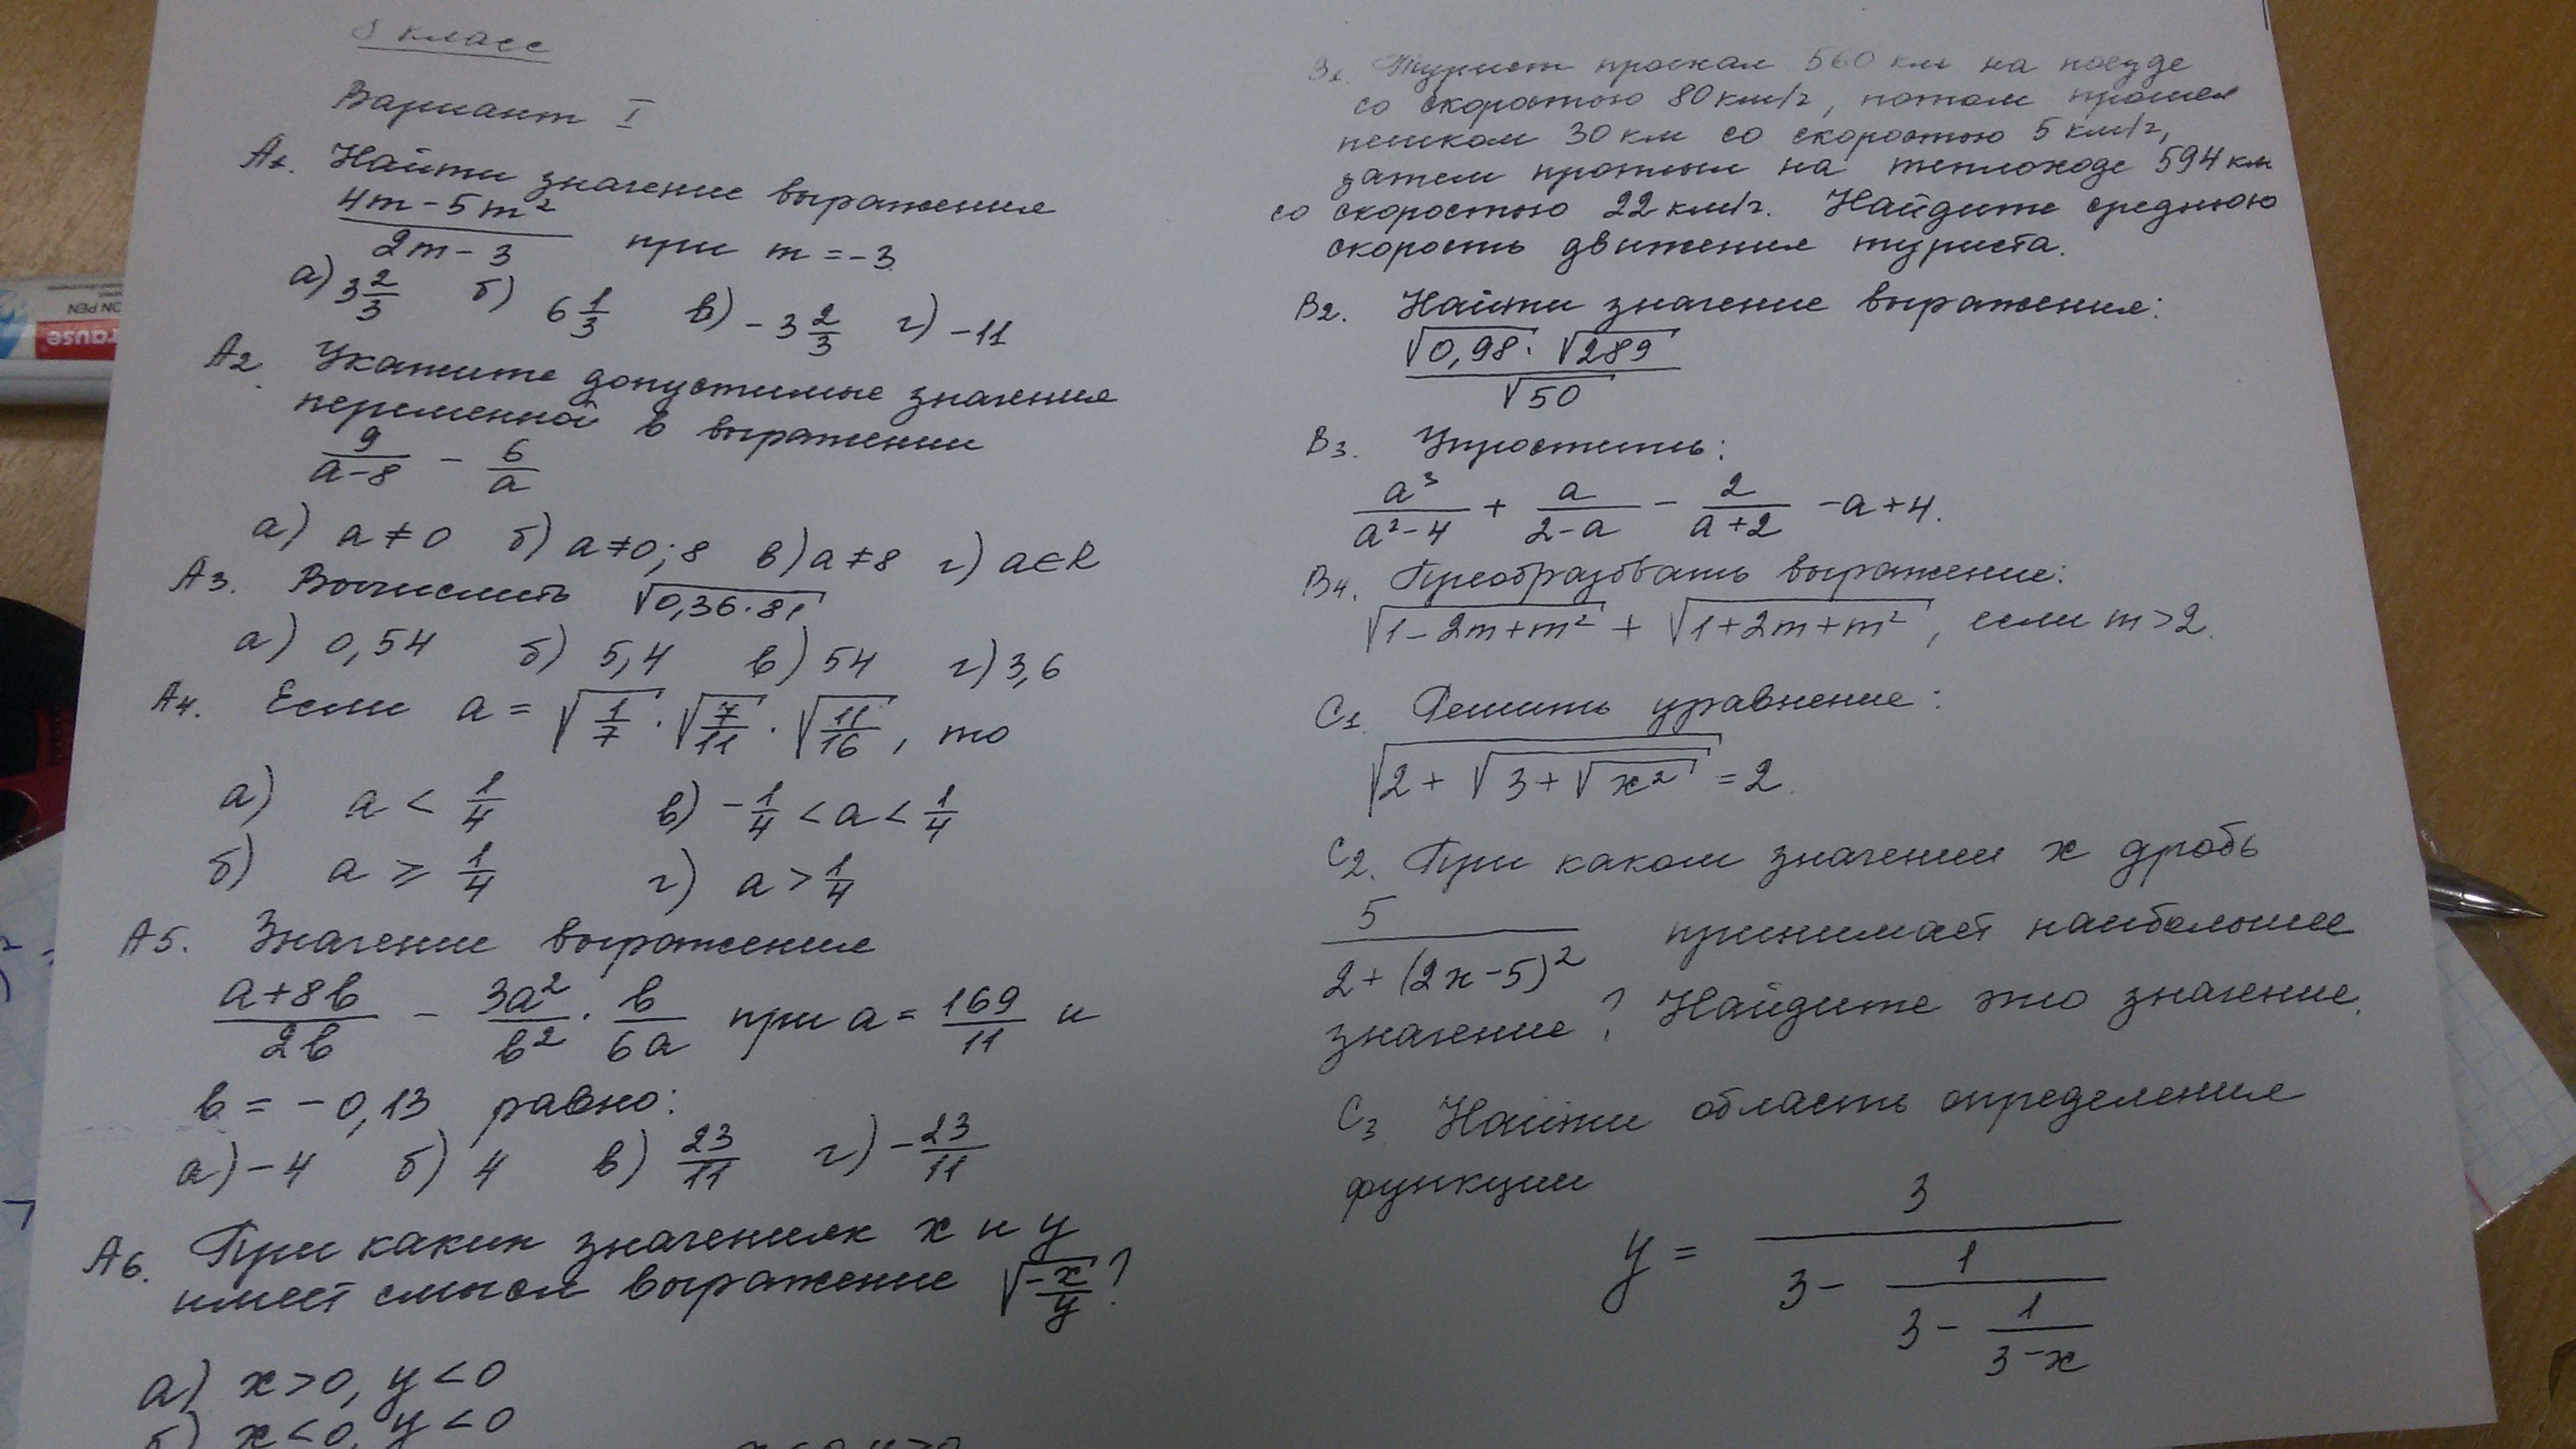 8 класс
Вариант I
A1. Найти значение выражения
(4m - 5m²)/(2m - 3) при m = -3
а) 3 2/3 б) 6 1/3 в) -3 2/3 г) -11
A2. Укажите допустимые значения
переменной в выражении
9/(a-8) - 6/a
а) a ≠ 0 б) a ≠ 0; 8 в) a ≠ 8 г) a ∈ R
A3. Вычислить √(0,36·81)
а) 0,54 б) 5,4 в) 54 г) 3,6
A4. Если a = √(1/7) · √(7/11) · √(11/16), то
а) a < 1/4 в) -1/4 < a < 1/4
б) a ⩾ 1/4 г) a > 1/4
A5. Значение выражения
(a+8b)/(2b) - 3a²/b² · b/(6a) при a = 169/11 и
b = -0,13 равно:
а) -4 б) 4 в) 23/11 г) -23/11
A6. При каких значениях x и y
имеет смысл выражение √(-x/y)?
а) x>0, y<0
б) x<0, y<0
B1. Турист проехал 560 км на поезде
со скоростью 80 км/г, потом прошел
пешком 30 км со скоростью 5 км/г,
затем проплыл на теплоходе 594 км
со скоростью 22 км/г. Найдите среднюю
скорость движения туриста.
B2. Найти значение выражения:
(√0,98 · √289)/√50
B3. Упростить:
a³/(a²-4) + a/(2-a) - 2/(a+2) - a + 4.
B4. Преобразовать выражение:
√(1-2m+m²) + √(1+2m+m²), если m>2.
C1. Решить уравнение:
√(2 + √(3 + √(x²))) = 2.
C2. При каком значении x дробь
5/(2+(2x-5)²) принимает наибольшее
значение? Найдите это значение.
C3 Найти область определения
функции
y = 3/(3 - 1/(3 - 1/(3-x)))